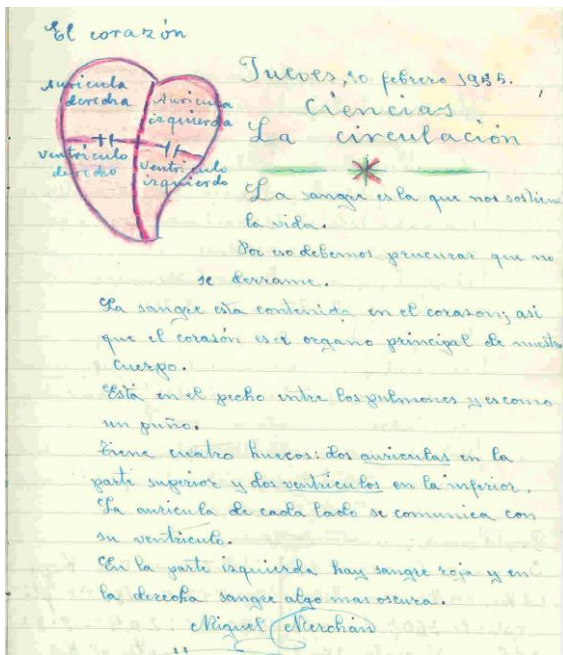 El corazón
Aurícula
derecha
Aurícula
izquierda
Ventrículo
derecho
Ventrículo
izquierdo
Jueves, 10 febrero 1955.
Ciencias
La circulación
La sangre es la que nos sostiene
la vida.
Por eso debemos procurar que no
se derrame.
La sangre esta contenida en el corazon; asi
que el corazón es el organo principal de nuestro
cuerpo.
Está en el pecho entre los pulmones y es como
un puño.
Tiene cuatro huecos: dos auriculas en la
parte superior y dos ventrículos en la inferior.
La auricula de cada lado se comunica con
su ventriculo.
En la parte izquierda hay sangre roja y en
la derecha sangre algo mas oscura.
Miguel Merchán